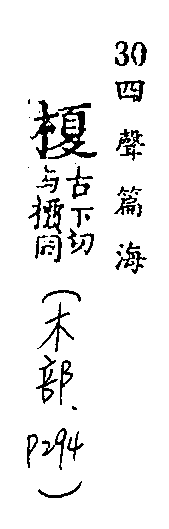 30四聲篇海
榎古下切
与檟同
(木部、P294)